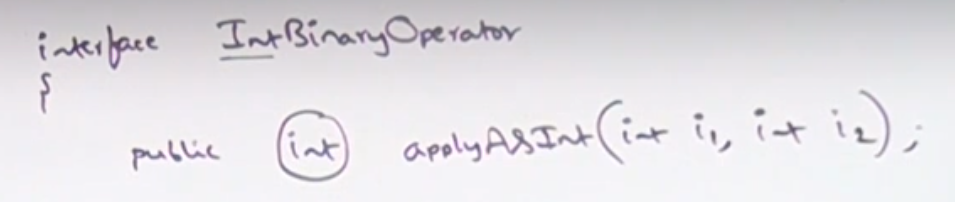 interface IntBinaryOperator
{
public int applyAsInt(int i1, int i2);